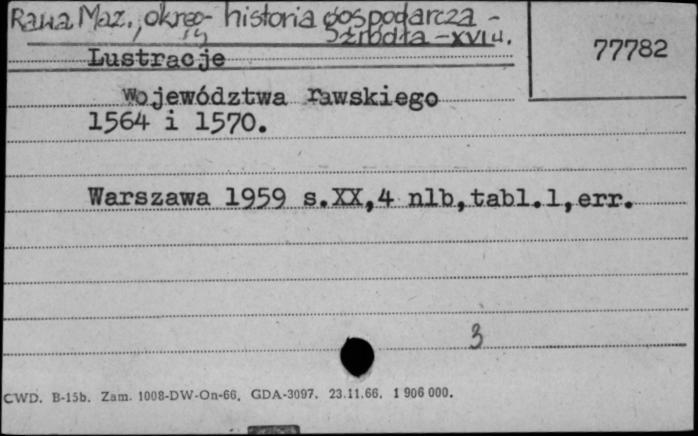 Rawa Maz., okręg - historia gospodarcza -
źródła - XVI w.
77782
Lustracje
Województwa rawskiego
1564 i 1570.
Warszawa 1959 s.XX,4 nlb,tabl.1,err.
3
CWD. B-15b. Zam. 1008-DW-On-66. GDA-3097. 23.11.66. 1 906 000.